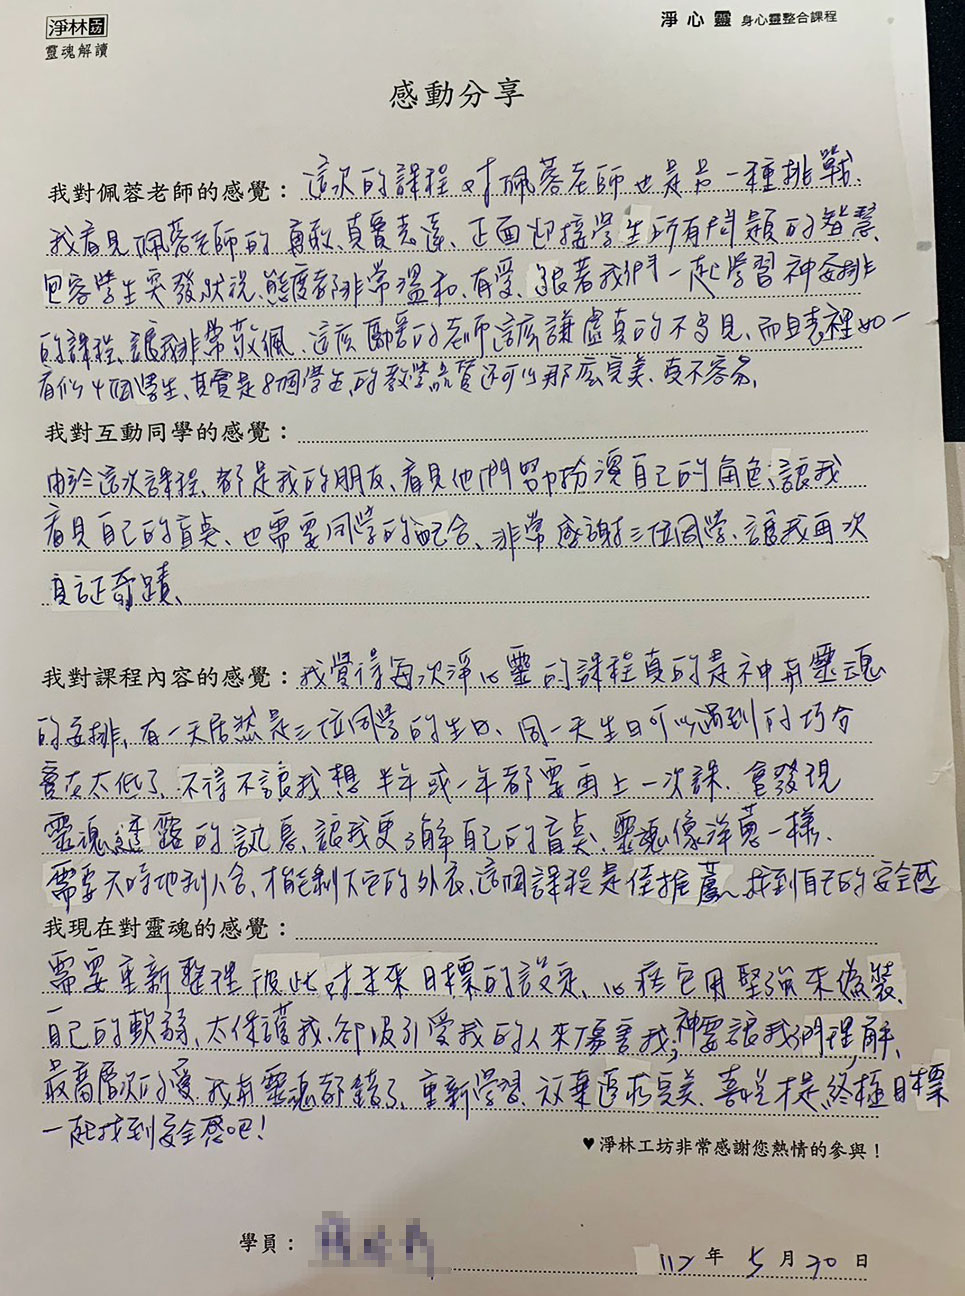 淨林
靈魂解讀
淨心靈 身心靈整合課程
感動分享
我對佩蓉老師的感覺：這次的課程對佩蓉老師也是另一種挑戰、
我看見佩蓉老師的勇敢、真實表達、正面迎接學生所有問題的智慧、
包容學生突發狀況、態度都非常溫和、有愛、跟著我們一起學習神安排
的課程、讓我非常敬佩、這麼勵害的老師這麼謙虛真的不多見、而且表裡如一
看似4個學生、其實是8個學生、的教學品質還可以那麼完美、真不容易、
我對互動同學的感覺：
由於這次課程、都是我的朋友、看見他們努力扮演自己的角色、讓我
看見自己的盲點、也需要同學的配合、非常感謝三位同學、讓我再次
見証奇蹟、
我對課程內容的感覺：我覺得每次淨心靈的課程真的是神再靈魂
的安排、有一天居然是三位同學的生日、同一天生日可以遇到的巧合
實在太低了、不得不讓我想半年或一年都要再上一次課、會發現
靈魂透露的訊息、讓我更了解自己的盲點、靈魂像洋蔥一樣、
需要天時地利人合、才能剝下它的外衣、這個課程是佳推薦、找到自己的安全感
我現在對靈魂的感覺：
需要重新整理彼此對未來目標的設定、心疼它用堅強來偽裝、
自己的軟弱、太保護我、卻吸引愛我的人來傷害我；神要讓我們理解、
最高層次的愛、我再靈魂都錯了、重新學習、放棄追求完美、喜悅才是終極目標
一起找到安全感吧！
♥淨林工坊非常感謝您熱情的參與！
學員：
112年5月30日